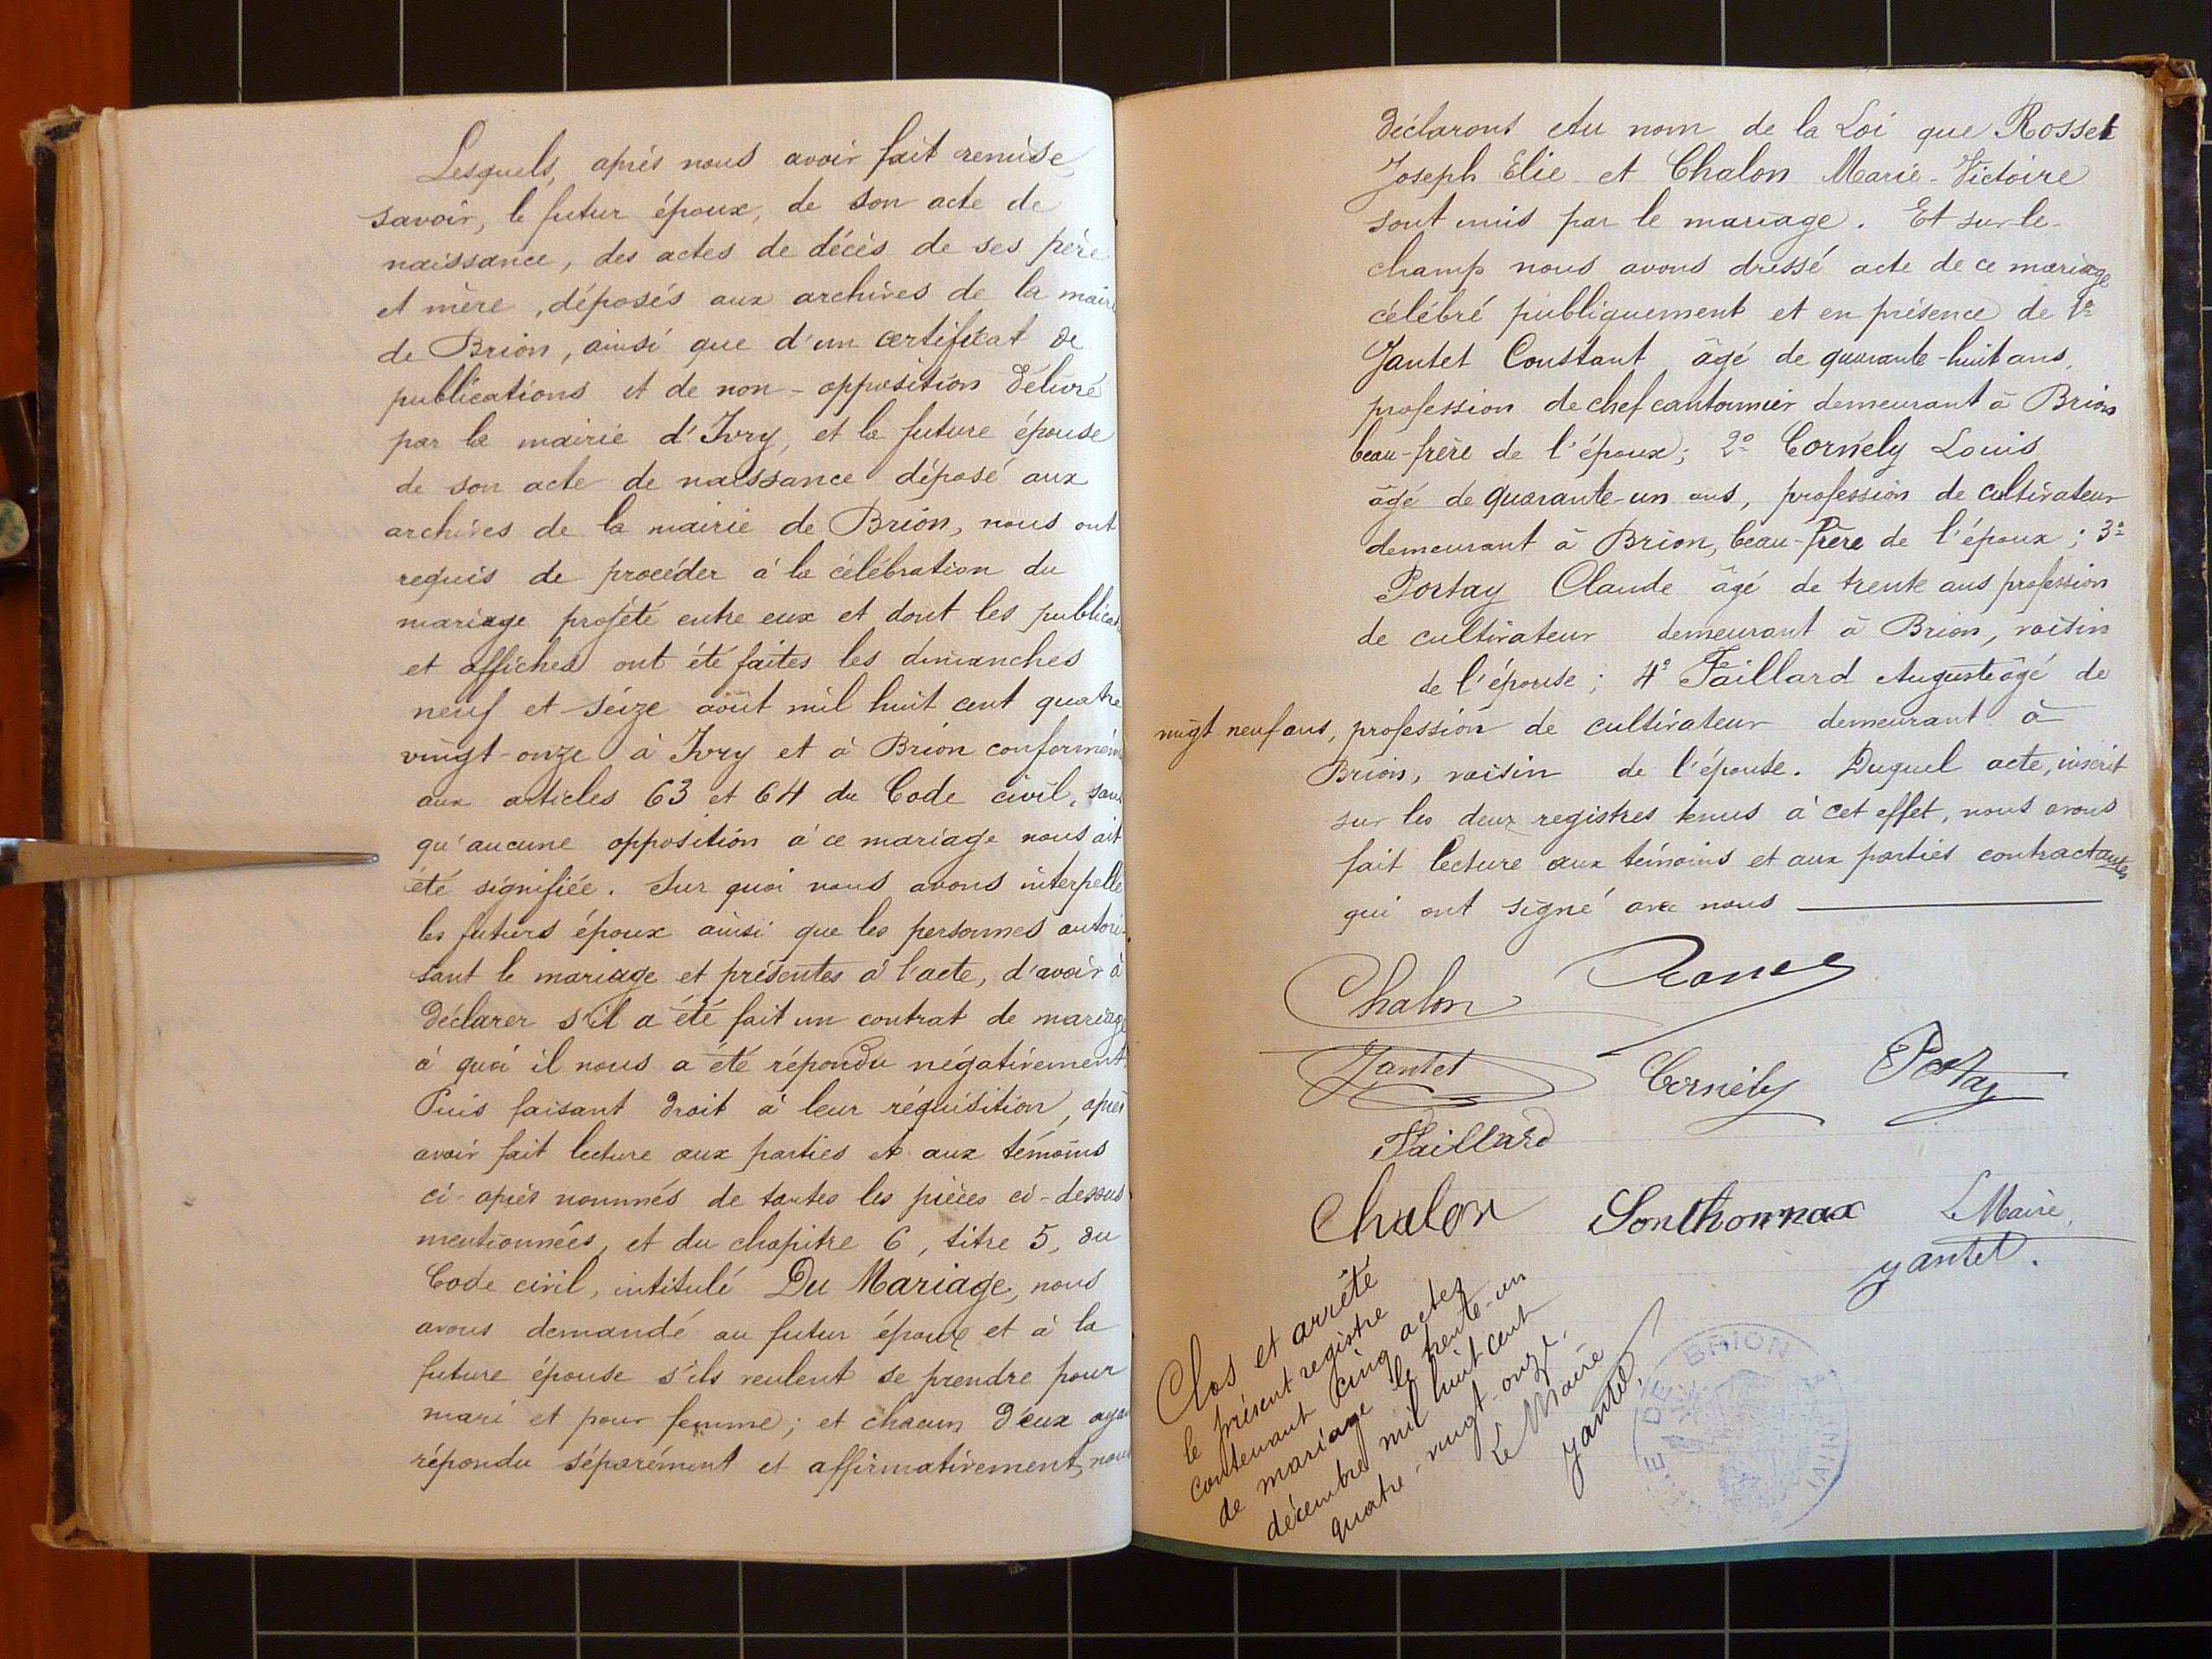 Lesquels, après nous avoir fait remise,
savoir, le futur époux, de son acte de
naissance, des actes de décès de ses père
et mère, déposés aux archives de la mairie
de Brion, ainsi que d'un certificat de
publications et de non-opposition délivré
par la mairie d'Ivry, et la future épouse
de son acte de naissance déposé aux
archives de la mairie de Brion, nous ont
requis de procéder à la célébration du
mariage projeté entre eux et dont les publicat
et affiches ont été faites les dimanches
neuf et seize août mil huit cent quatre
vingt-onze à Ivry et à Brion conformém
aux articles 63 et 64 du Code civil, sans
qu'aucune opposition à ce mariage nous ait
été signifiée. Sur quoi nous avons interpellé
les futurs époux ainsi que les personnes autori-
sant le mariage et présentes à l'acte, d'avoir à
déclarer s'il a été fait un contrat de mariage
à quoi il nous a été répondu négativement.
Puis faisant droit à leur réquisition, après
avoir fait lecture aux parties et aux témoins
ci-après nommés de toutes les pièces ci-dessus
mentionnées, et du chapitre 6, titre 5, du
Code civil, intitulé Du Mariage, nous
avons demandé au futur époux et à la
future épouse s'ils veulent se prendre pour
mari et pour femme; et chacun d'eux aya
répondu séparément et affirmativement, nous
déclarons Au nom de la Loi que Rosset
Joseph Elie et Chalon Marie-Victoire
sont unis par le mariage. Et sur-le-
champ nous avons dressé acte de ce mariage
célébré publiquement et en présence de 1º
Jantet Constant âgé de quarante-huit ans,
profession de chef cantonnier demeurant à Brion
beau-frère de l'époux; 2º Cornély Louis
âgé de quarante-un ans, profession de cultivateur
demeurant à Brion, beau-frère de l'époux; 3º
Portay Claude âgé de trente ans profession
de cultivateur demeurant à Brion, voisin
de l'épouse; 4º Taillard Auguste âgé de
vingt neuf ans, profession de cultivateur demeurant à
Brion, voisin de l'épouse. Duquel acte, inscrit
sur les deux registres tenus à cet effet, nous avons
fait lecture aux témoins et aux parties contractantes
qui ont signé avec nous
Chalon
Jantet Cornély Portay
Taillard
Chalon Sonthonnax Le Maire,
Jantet.
Clos et arrêté
le présent registre
contenant cinq actes
de mariage le trente-un
décembre mil huit cent
quatre-vingt-onze.
Le Maire
Jantet.
BRION